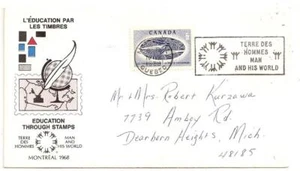 L'ÉDUCATION PAR
LES TIMBRES
EDUCATION
THROUGH STAMPS
TERRE DES HOMMES
MAN AND HIS WORLD
MONTRÉAL 1968
CANADA
TERRE DES
HOMMES
MAN
AND HIS WORLD
Mr. & Mrs. Robert Kurzawa
7739 Ambey Rd
Dearborn Heights, Mich.
48185